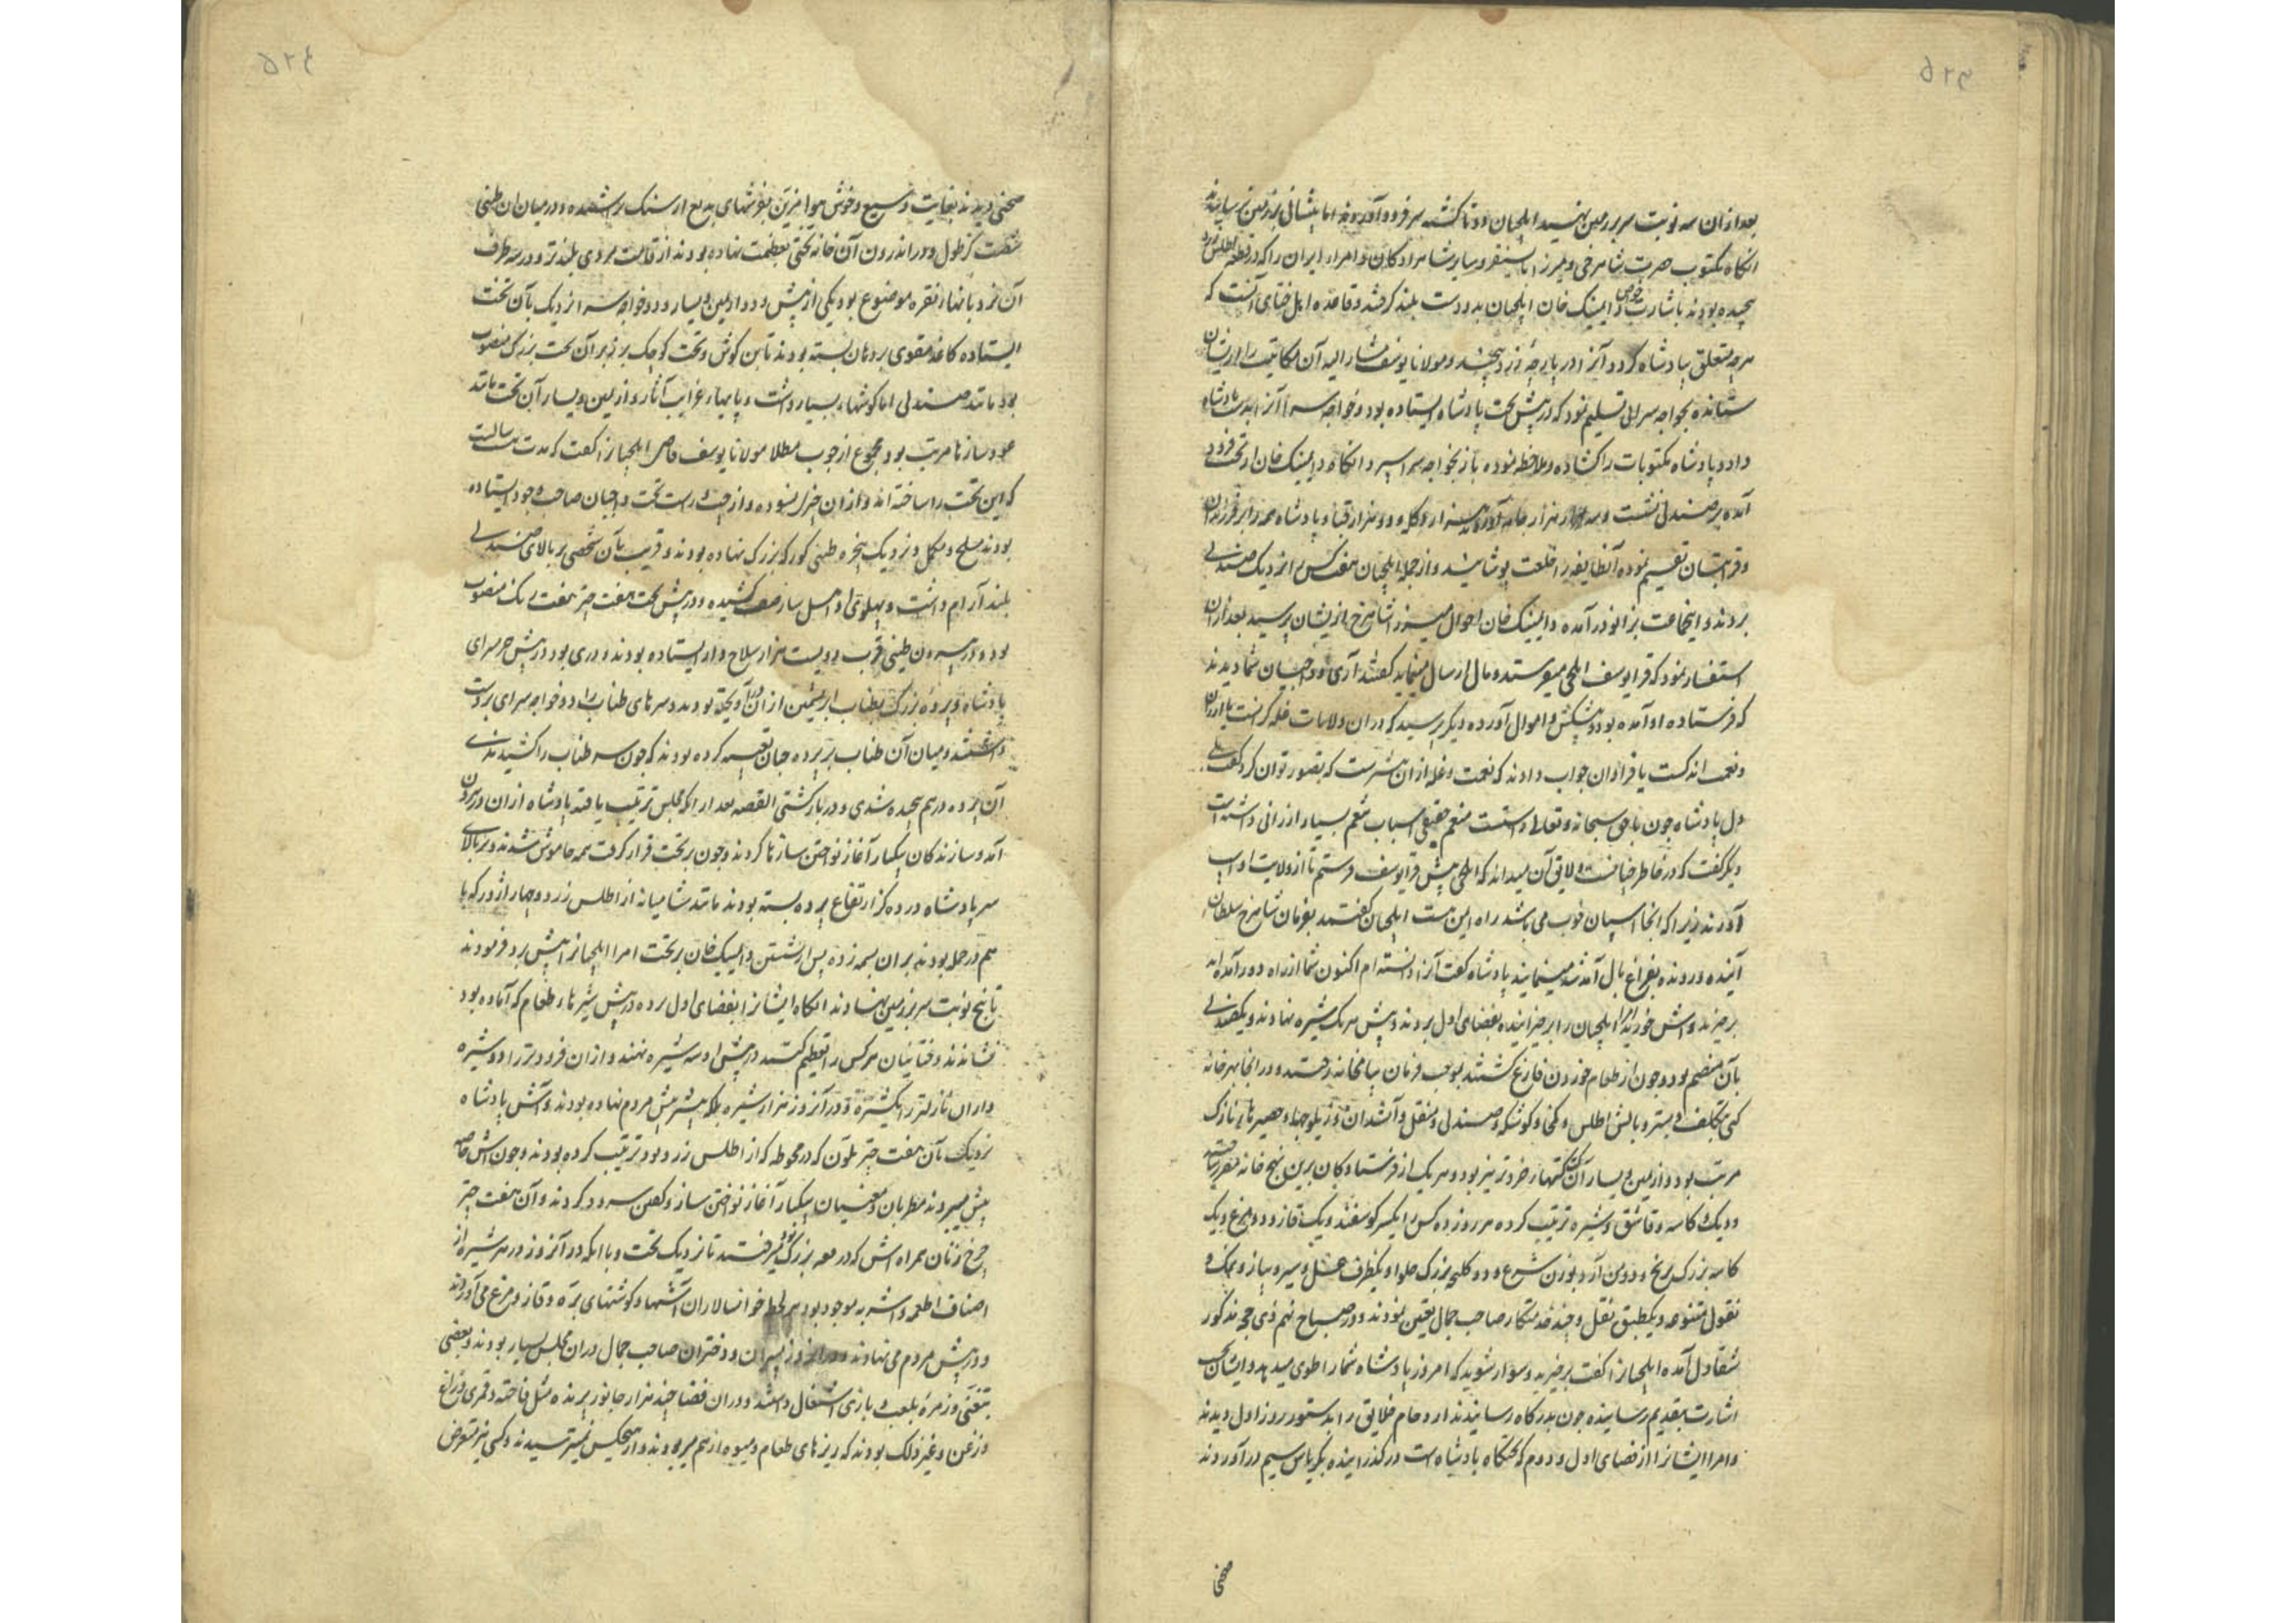 بعد ازان سه نوبت سر بر زمین نهید ایلچیان دوتا گشته سر فرود آوردند اما پیشانی بر زمین نرسانیدند
انگاه مکتوب حضرت شاهرخی و میرزا بایسنقر و سایر شاهزادگان و امراء ایران را که در قطعه اطلس زرد
پیچیده بودند باشارت داییمنک خان ایلچیان بدو دست بلند کردند و قاعده اهل ختای آنست که
هرچه متعلق بپادشاه کردد آنرا در پارچه زرد پیچند و مولانا یوسف مشار الیه آن مکاتیب را از ایشان
ستانده بخواجه سرائی تسلیم نمود که در پیش تخت پادشاه ایستاده بود و خواجه سرا آنرا بدست پادشاه
داد و پادشاه مکتوبات را کشاده و ملاحظه نموده باز بخواجه سرا سپرد و انگاه داییمنک خان از تخت فرود
آمده بر صندلی نشست و سه هزار جامه آوردند هزار دکله و دو هزار قبا و پادشاه همه را بر فرزندان
و قرابتان تقسیم نموده آنطایفه را خلعت پوشانید و از جمله ایلچیان هفت کس را نزدیک صندلی
بردند و اینجماعت بزانو در آمده داییمنک خان احوال میرزا شاهرخ از ایشان پرسید بعد ازان
استفسار نمود که قرا یوسف ایلچی میفرستد و مال ارسال مینماید گفتند آری و داجیان شما دیدند
که فرستاده او آمده بود و پیشکش و اموال آورده دیگر پرسید که در ان ولایات غله گرانست یا ارزان
و نعمت اندکست یا فراوان جواب دادند که نعمت و غله ازان بیشترست که تصور توان کرد گفت بلی
دل پادشاه چون با حق سبحانه و تعالی راستست منعم حقیقی اسباب تنعم بسیار ارزانی داشته است
دیگر گفت که در خاطر ایلچی پیش قرا یوسف فرستم تا از ولایت او اسپ
آورند زیرا که انجا اسپان خوب می باشد راه ایمن هست ایلچیان گفتند بفرمان شاهرخ سلطان
آینده و رونده بفراغ بال آمد شد مینمایند پادشاه گفت آنرا دانسته ام اکنون شما از راه دور آمده اید
برخیزید و آش خورید ایلچیان را برخیزانیده بفضای اول بردند و پیش هر یک شیره نهادند و یک صندلی
بآن منضم بود و چون از طعام خوردن فارغ گشتند بموجب فرمان بیامخانه رفتند و در انجا بهر خانه
کتی بتکلف و بستر و بالش اطلس و صندلی و منقل و آتشدان و زیلوچها و حصیرهاء نازک
مرتب بود و از یمین و یسار آن کتهاء خردتر نیز بود و هر یک از فرستادگان برین نهج خانه مقرر ساخته
و دیگ و کاسه و قاشق و شیره ترتیب کرده هر روز ده کس را یکسر گوسفند و یک قاز و دو مرغ و یک
کاسه بزرگ برنج و دو من آرد بوزن شرع و دو کلچه بزرگ حلوا و یکظرف عسل و سیر و پیاز و نمک و
بقول متنوعه و یکطبق نقل و چند خدمتکار صاحب جمال تعیین نمودند و در صباح نهم ذی حجه مذکور
شقاول آمده ایلچیانرا گفت برخیزید و سوار شوید که امروز پادشاه شما را طوی میدهد و ایشان
اشارت بتقدیم رسانیده چون بدرگاه رسانیدند ازدحام خلایق را بدستور روز اول دیدند
و امرا ایشانرا از فضای اول و دوم که تختگاه پادشاه است در گذرانیده بکریاس سیم در آوردند
صحنی
صحنی دیدند بغایت وسیع و خوش هوا مزین بفرشهای بدیع از سنگ تراشیده و در میان ان طنبی
شصت گز طول و در اندرون آن خانه تختی بعظمت نهاده بودند از قامت مردی بلندتر و در سه طرف
آن نردبانهاء نقره موضوع بود یکی از پیش و دو از یمین و یسار و دو خواجه سرا نزدیک بآن تخت
ایستاده کاغذ مقوی بر دهان بسته بودند تا بن گوش و تخت کوچک بر زبر آن تخت بزرگ منصوب
بود مانند صندلی اما گوشهاء بسیار داشت و پایهاء غرایب آثار و از یمین و یسار آن تخت مانند
عودسازها مرتب بود مجموع از چوب مطلا مولانا یوسف قاضی ایلچیانرا گفت که مدت سالست
که این تخت را ساخته اند و ازان چیزی نسوده و از چپ و راست تخت داجیان صاحب وجود ایستاده
بودند مسلح و مکمل و نزدیک پنجره طنبی کورکه بزرگ نهاده بودند و قریب بآن شخصی بر بالای صندلی
بلند آرام داشت و پهلوی او اهل ساز صف کشیده و در پیش تخت هفت چتر هفت رنگ منصوب
بود و در بیرون طنبی قرب دویست هزار سلاح دار ایستاده بودند و دری بود در پیش حرمسرای
پادشاه و پرده بزرگ بطناب ابریشمین از ان در آویخته بودند و سرهای طناب را دو خواجه سرای بدست
داشتند و میان آن طناب بر پرده چنان تعبیه کرده بودند که چون سر طناب را کشیدندی
آن پرده درهم پیچیده شدی و در باز گشتی القصه بعد از انکه مجلس ترتیب یافته پادشاه ازان در بیرون
آمد و سازندگان یکبار آغاز نواختن سازها کردند و چون بر تخت قرار گرفت همه خاموش شدند و بر بالای
سر پادشاه در ده گز ارتفاع پرده بسته بودند مانند شامیانه از اطلس زرد و چهار اژدر که با
هم در حمله بودند بران بسمه زده پس از نشستن داییمنک خان بر تخت امرا ایلچیانرا پیش برده فرمودند
تا پنج نوبت سر بر زمین نهادند انگاه ایشانرا بفضای اول برده در پیش شیرهاء طعام که آماده بود
نشاندند و ختائیان هر کس را تعظیم کنند در پیش او سه شیره نهند و ازان فروتر را دو شیره
و ازان نازلتر را یکشیره و در آنروز هزار شیره بلکه بیشتر پیش مردم نهاده بودند و آش پادشاه
نزدیک بآن هفت چتر ملون که در محوطه که از اطلس زرد بود ترتیب کرده بودند و چون آش خاصه
پیش میبردند مطربان و مغنیان یکبار آغاز نواختن ساز و گفتن سرود کردند و آن هفت چتر
چرخ زنان همراه آش که در بزرگ بود میرفتند تا نزدیک تخت و با انکه در آنروز در هر شیره از
اصناف اطعمه و اشربه موجود بود هر لحظه خوانسالاران آشها و گوشتهای بره و قاز و مرغ می آوردند
و در پیش مردم می نهادند و در انروز پسران و دختران صاحب جمال دران مجلس بسیار بودند و بعضی
بتغنی و زمره بلعب و بازی اشتغال داشتند و دران فضا چند هزار جانور پرنده مثل فاخته و قمری و زاغ
و زغن و غیر ذلک بودند که ریزهای طعام و میوه از هم میربودند و از هیچکس نمیترسیدند و کسی نیز متعرض